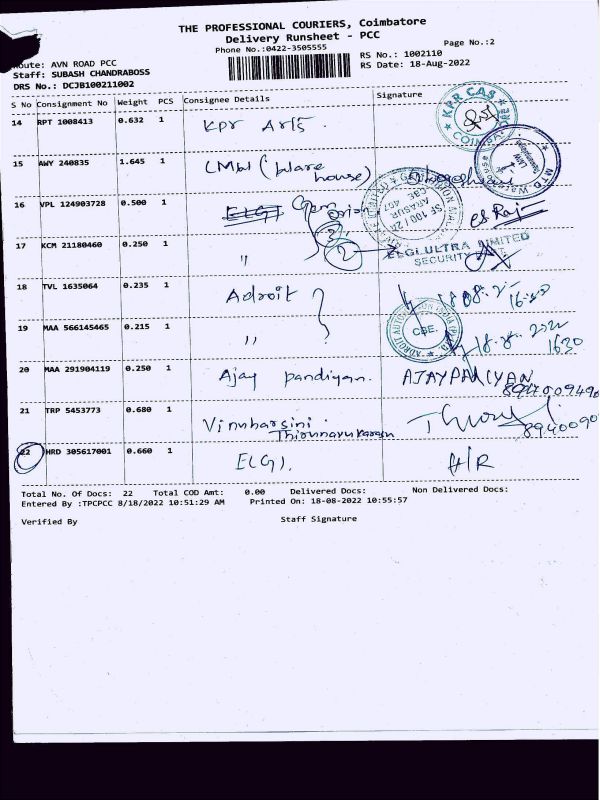 THE PROFESSIONAL COURIERS, Coimbatore
Delivery Runsheet - PCC
Phone No.:0422-3505555
Page No.:2
RS No.: 1002110
RS Date: 18-Aug-2022
oute: AVN ROAD PCC
Staff: SUBASH CHANDRABOSS
DRS No.: DCJB100211002
S No Consignment No Weight PCS Consignee Details Signature
14 RPT 1008413 0.632 1 KPR Arts.
KPR CAS
COIMBATORE
15 AWY 240835 1.645 1 LMW
house)
16 VPL 124903728 0.500 1 ELGI Gem
orion
17 KCM 21180460 0.250 1 "
2
ELGI ULTRA LIMITED
SECURITY
18 TVL 1635064 0.235 1 Adroit
16:30
19 MAA 566145465 0.215 1 "
CBE.
1630
20 MAA 291904119 0.250 1 Ajay pandiyan. AJAYPANIYAN
21 TRP 5453773 0.680 1 Vinuharsini.
Thirunavukarasu
22 HRD 305617001 0.660 1 ELGI. H/R
Total No. Of Docs: 22 Total COD Amt: 0.00 Delivered Docs: Non Delivered Docs:
Entered By :TPCPCC 8/18/2022 10:51:29 AM Printed On: 18-08-2022 10:55:57
Verified By Staff Signature